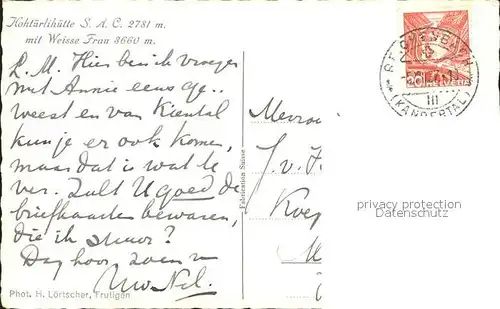 Hohtürlihütte S. A. C. 2781 m.
mit Weisse Frau 3660 m.
L. M. Hier ben ik vroeger
met Annie eens ge..
weest en van Kiental
kun je er ook komen,
maar dat is wat te
ver. Zult U goed de
briefkaarten bewaren,
die ik stuur?
Dag hoor, zoen v
Uw Nel.
Phot. H. Lörtscher, Frutigen
Fabrication Suisse
REICHENBACH
III
(KANDERTAL)
HELVETIA
Mevrou
J. v.
Koe
privacy protection
Datenschutz